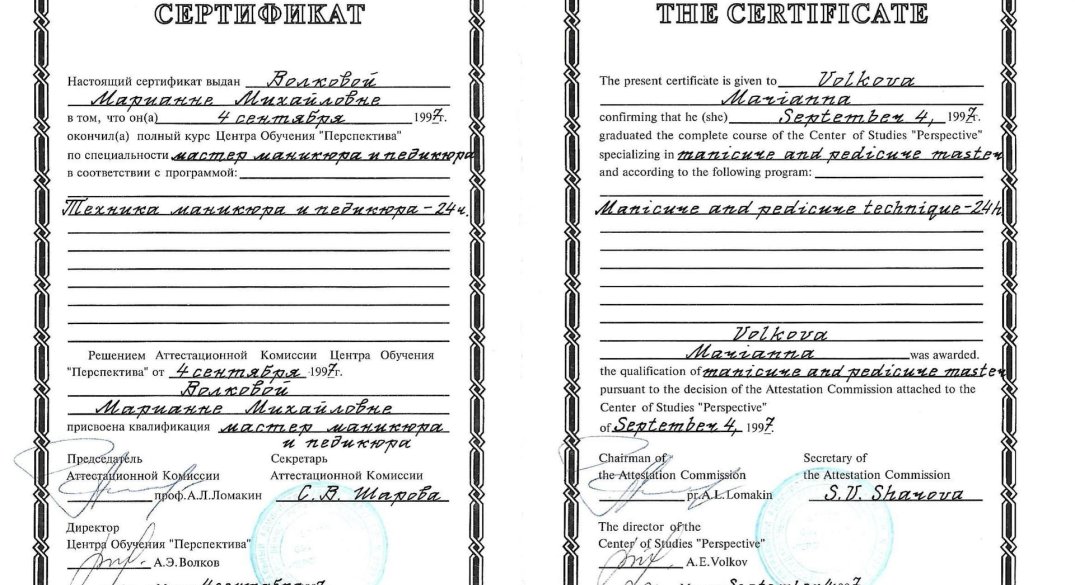 СЕРТИФИКАТ
Настоящий сертификат выдан Волковой
Марианне Михайловне
в том, что он(а) 4 сентября 1997г.
окончил(а) полный курс Центра Обучения "Перспектива"
по специальности мастер маникюра и педикюра
в соответствии с программой:
Техника маникюра и педикюра-24ч.
Решением Аттестационной Комиссии Центра Обучения
"Перспектива" от 4 сентября 1997г.
Волковой
Марианне Михайловне
присвоена квалификация мастер маникюра
и педикюра
Председатель
Аттестационной Комиссии
проф.А.Л.Ломакин
Секретарь
Аттестационной Комиссии
С.В. Шарова
Директор
Центра Обучения "Перспектива"
А.Э.Волков
THE CERTIFICATE
The present certificate is given to Volkova
Marianna
confirming that he (she) September 4, 1997г.
graduated the complete course of the Center of Studies "Perspective"
specializing in manicure and pedicure master
and according to the following program:
Manicure and pedicure technique-24h
Volkova
Marianna was awarded.
the qualification of manicure and pedicure master
pursuant to the decision of the Attestation Commission attached to the
Center of Studies "Perspective"
of September 4, 1997.
Chairman of
the Attestation Commission
pr.A.L.Lomakin
Secretary of
the Attestation Commission
S.V. Sharova
The director of the
Center of Studies "Perspective"
A.E.Volkov